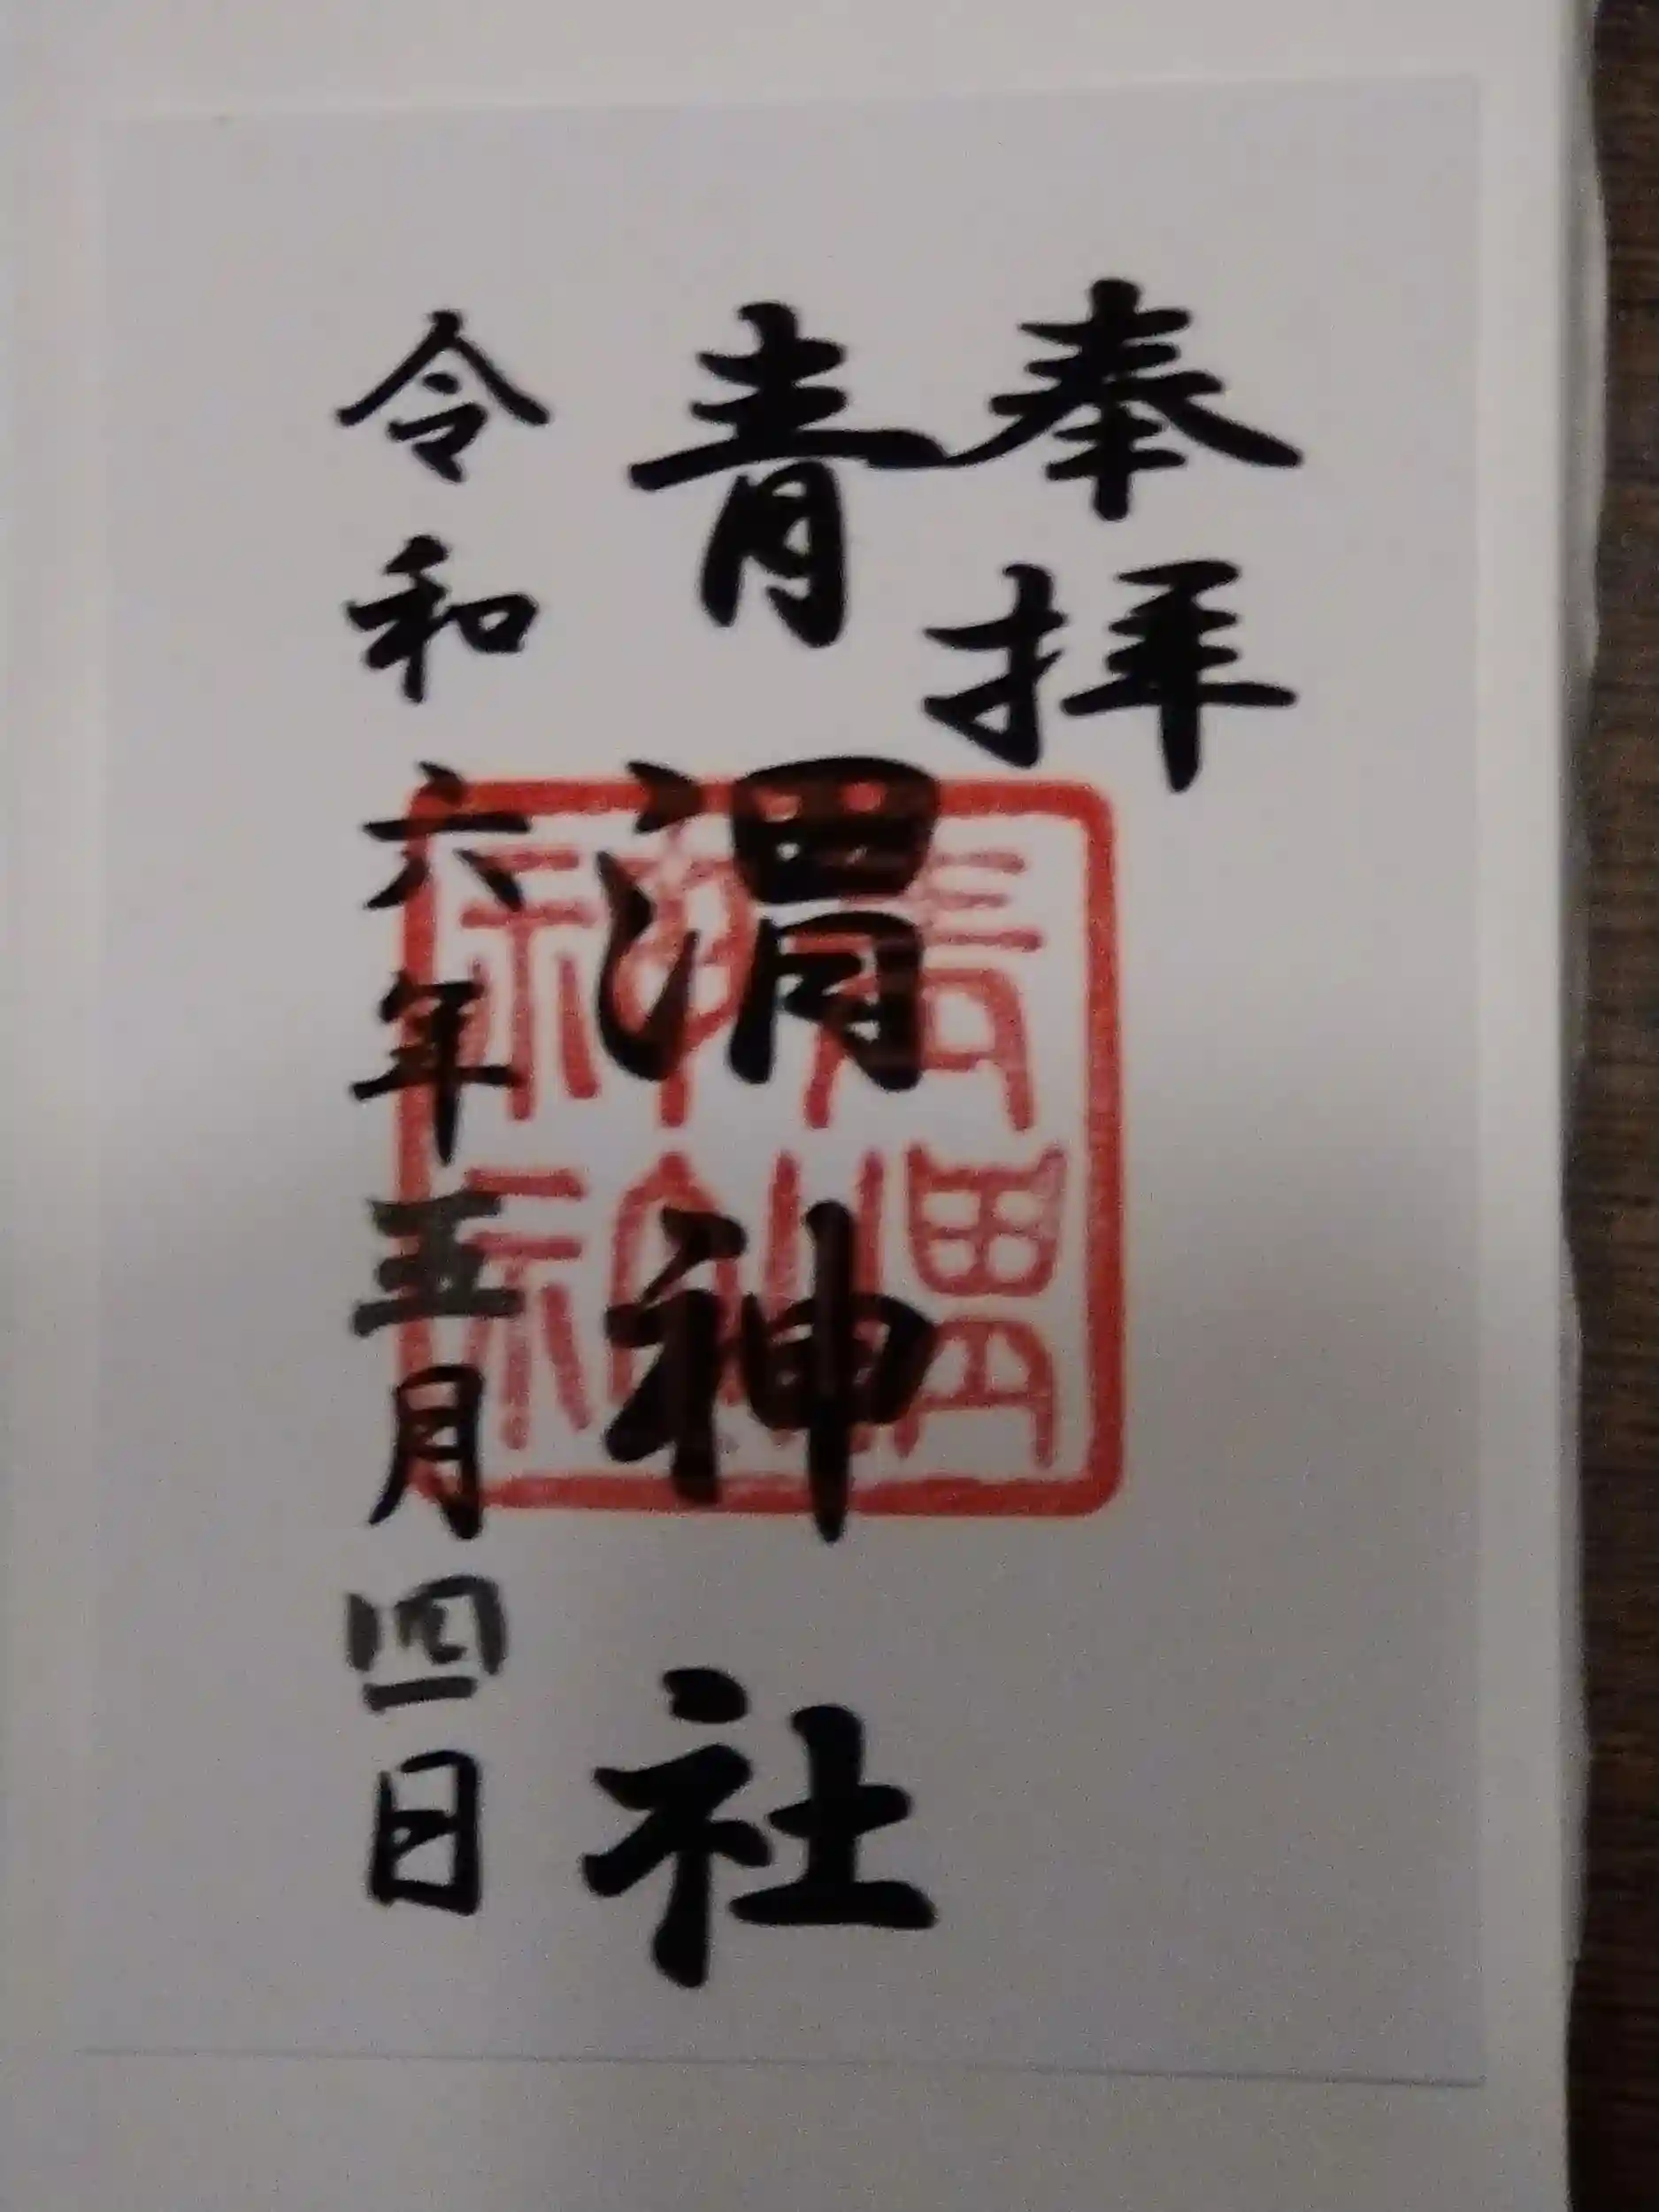 奉拝
青渭神社
令和六年五月四日
青渭神社